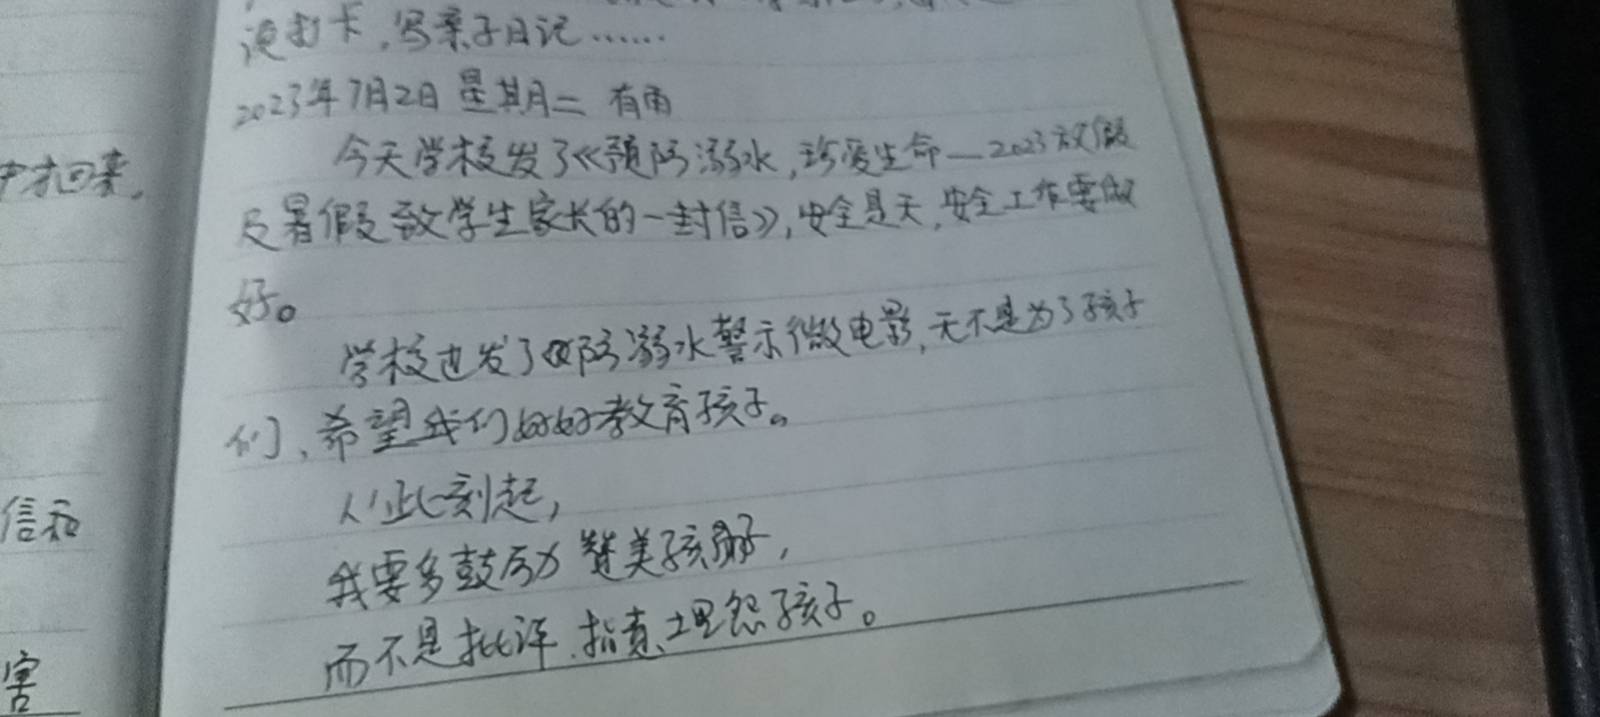 读打卡,写亲子日记……
2023年7月2日 星期二 有雨
今天学校发了《预防溺水,珍爱生命—2023放假
及暑假致学生家长的一封信》,安全是天,安全工作要做
好。
学校也发了《防溺水警示微电影,无不是为了孩子
们、希望我们好好教育孩子。
从此刻起,
我要多鼓励 赞美孩子,
而不是批评、指责、埋怨孩子。
才回来,
信和
害